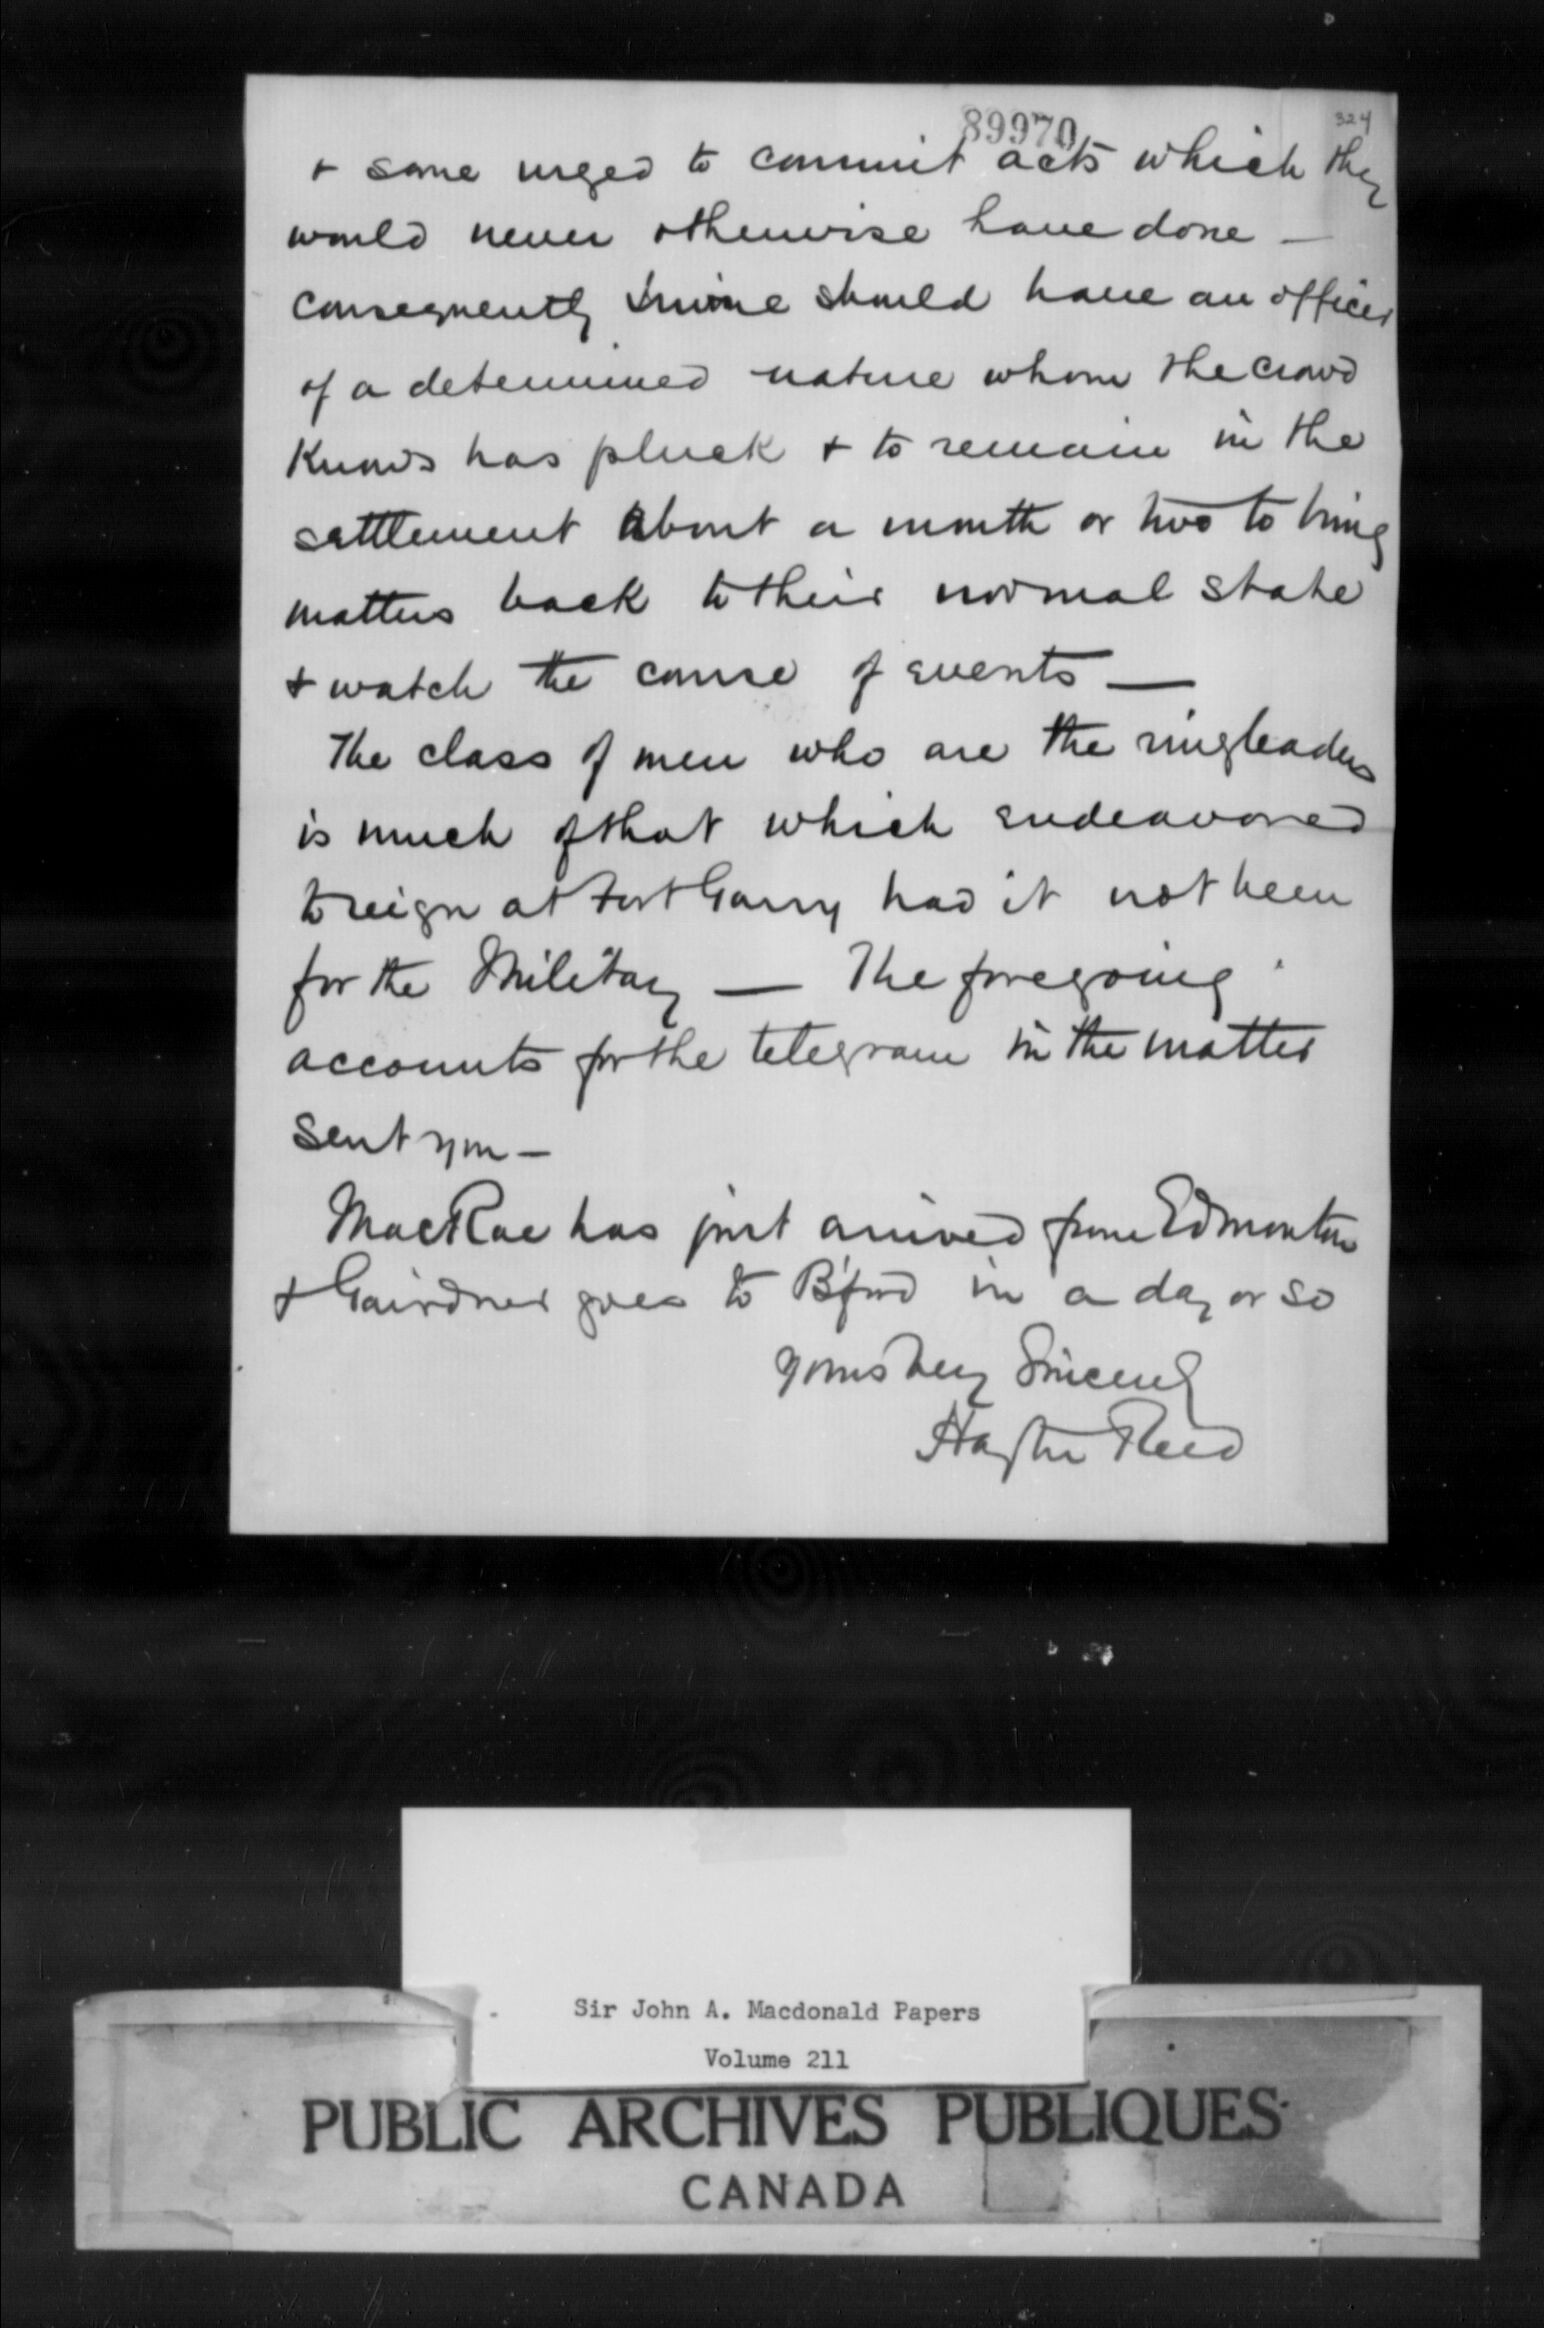 89970
324
+ some urged to commit acts which they
would never otherwise have done —
consequently Irvine should have an officer
of a determined nature whom the crowd
Knows has pluck + to remain in the
settlement about a month or two to bring
matters back to their normal state
+ watch the course of events —
The class of men who are the ringleaders
is much of that which endeavored
to reign at Fort Garry had it not been
for the Military — The foregoing
accounts for the telegram in the matter
sent you —
MacRae has just arrived from Edmonton
+ Gairdner goes to B'ford in a day or so
yours very Sincerely
Hayter Reed
Sir John A. Macdonald Papers
Volume 211
PUBLIC ARCHIVES PUBLIQUES
CANADA